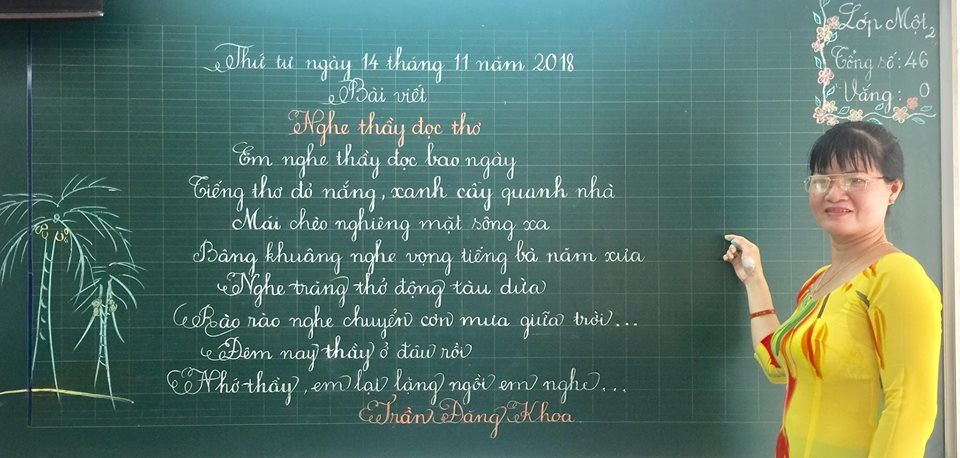 Thứ tư ngày 14 tháng 11 năm 2018
Bài viết
Nghe thầy đọc thơ
Em nghe thầy đọc bao ngày
Tiếng thơ đỏ nắng, xanh cây quanh nhà
Mái chèo nghiêng mặt sông xa
Bâng khuâng nghe vọng tiếng bà năm xưa
Nghe trăng thở động tàu dừa
Rào rào nghe chuyển cơn mưa giữa trời...
Đêm nay thầy ở đâu rồi
Nhớ thầy, em lại lặng ngồi em nghe...
Trần Đăng Khoa
Lớp Một 2
Tổng số: 46
Vắng: 0